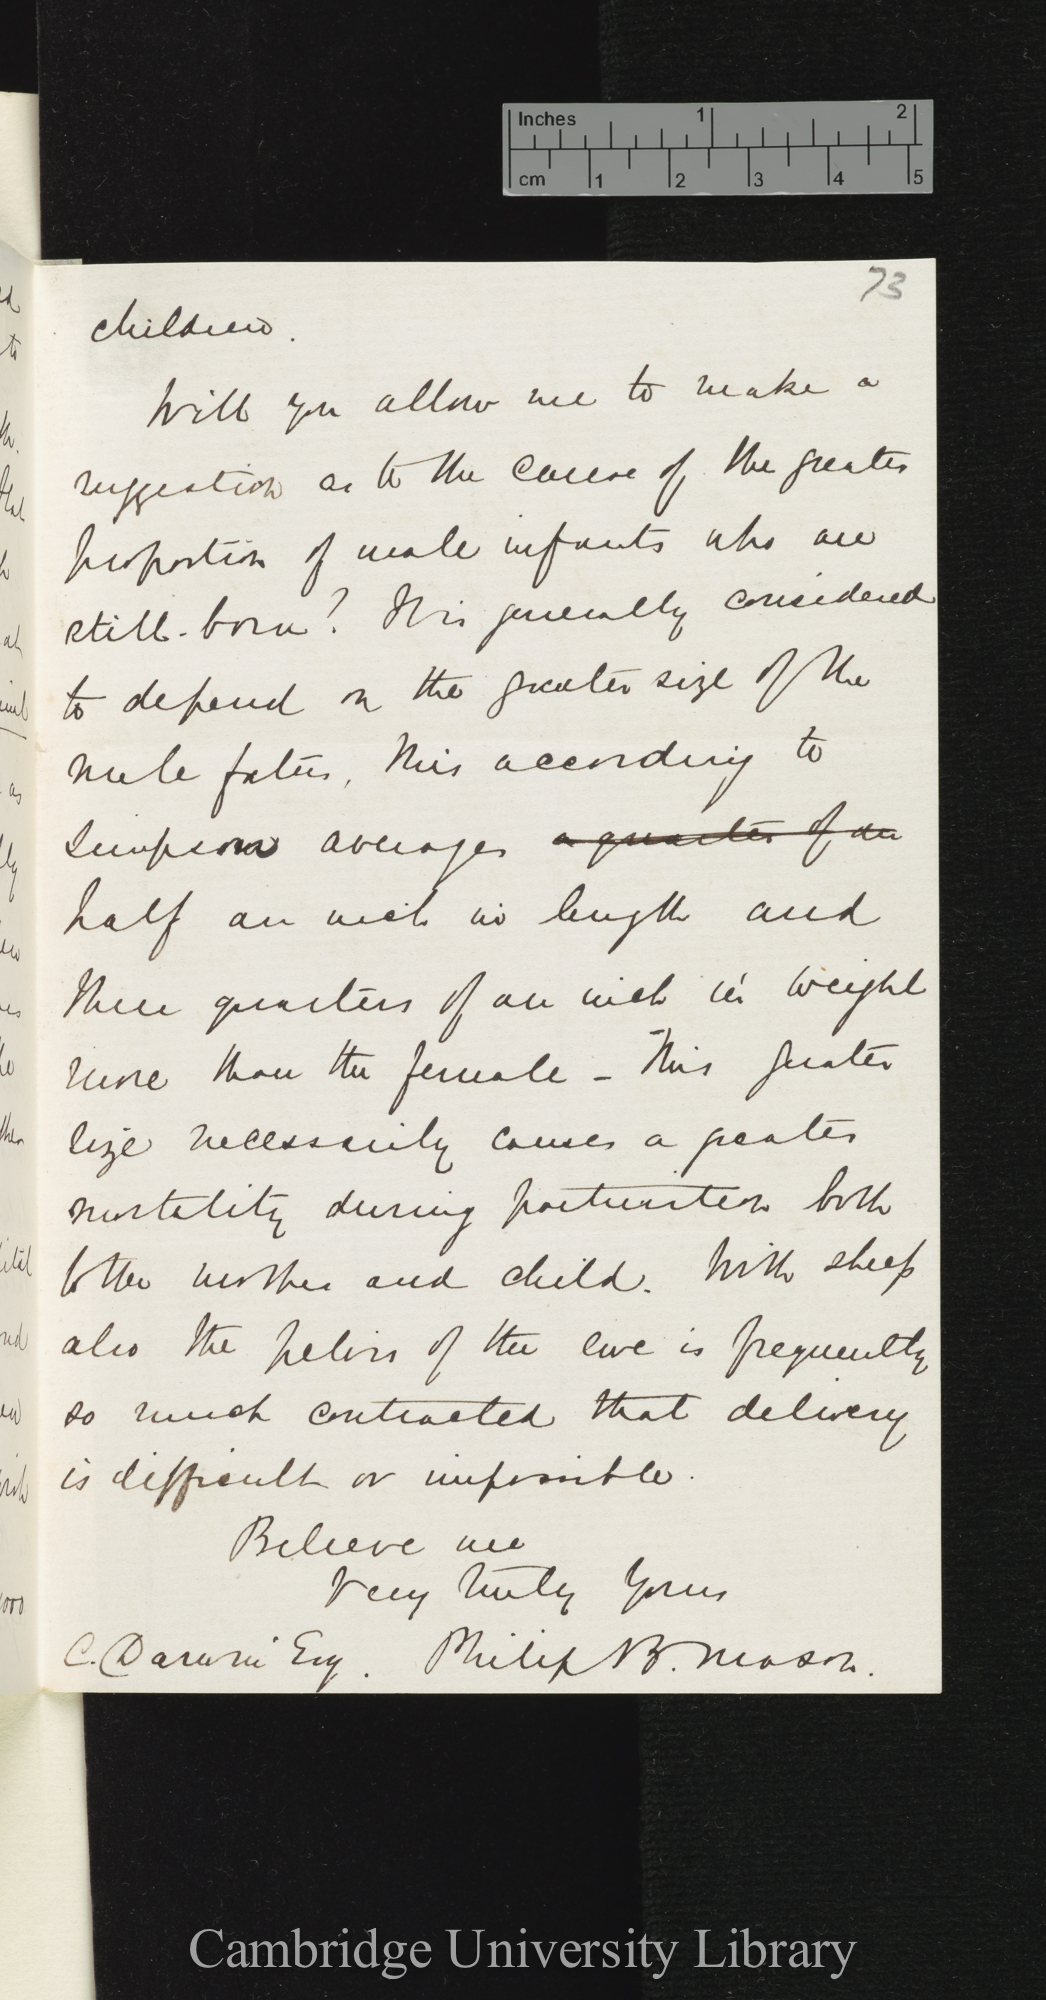 Inches 1 2
cm 1 2 3 4 5
73
children.
Will you allow me to make a
suggestion as to the cause of the greater
proportion of male infants who are
still-born? It is generally considered
to depend on the greater size of the
male foetus, this according to
Simpson averages a quarter of an
half an inch in length and
three quarters of an inch in weight
more than the female – This greater
size necessarily causes a greater
mortality during parturition both
to the mother and child. With sheep
also the pelvis of the ewe is frequently
so much contracted that delivery
is difficult or impossible.
Believe me
Very truly Yours
C. Darwin Esq. Philip B. Mason.
Cambridge University Library